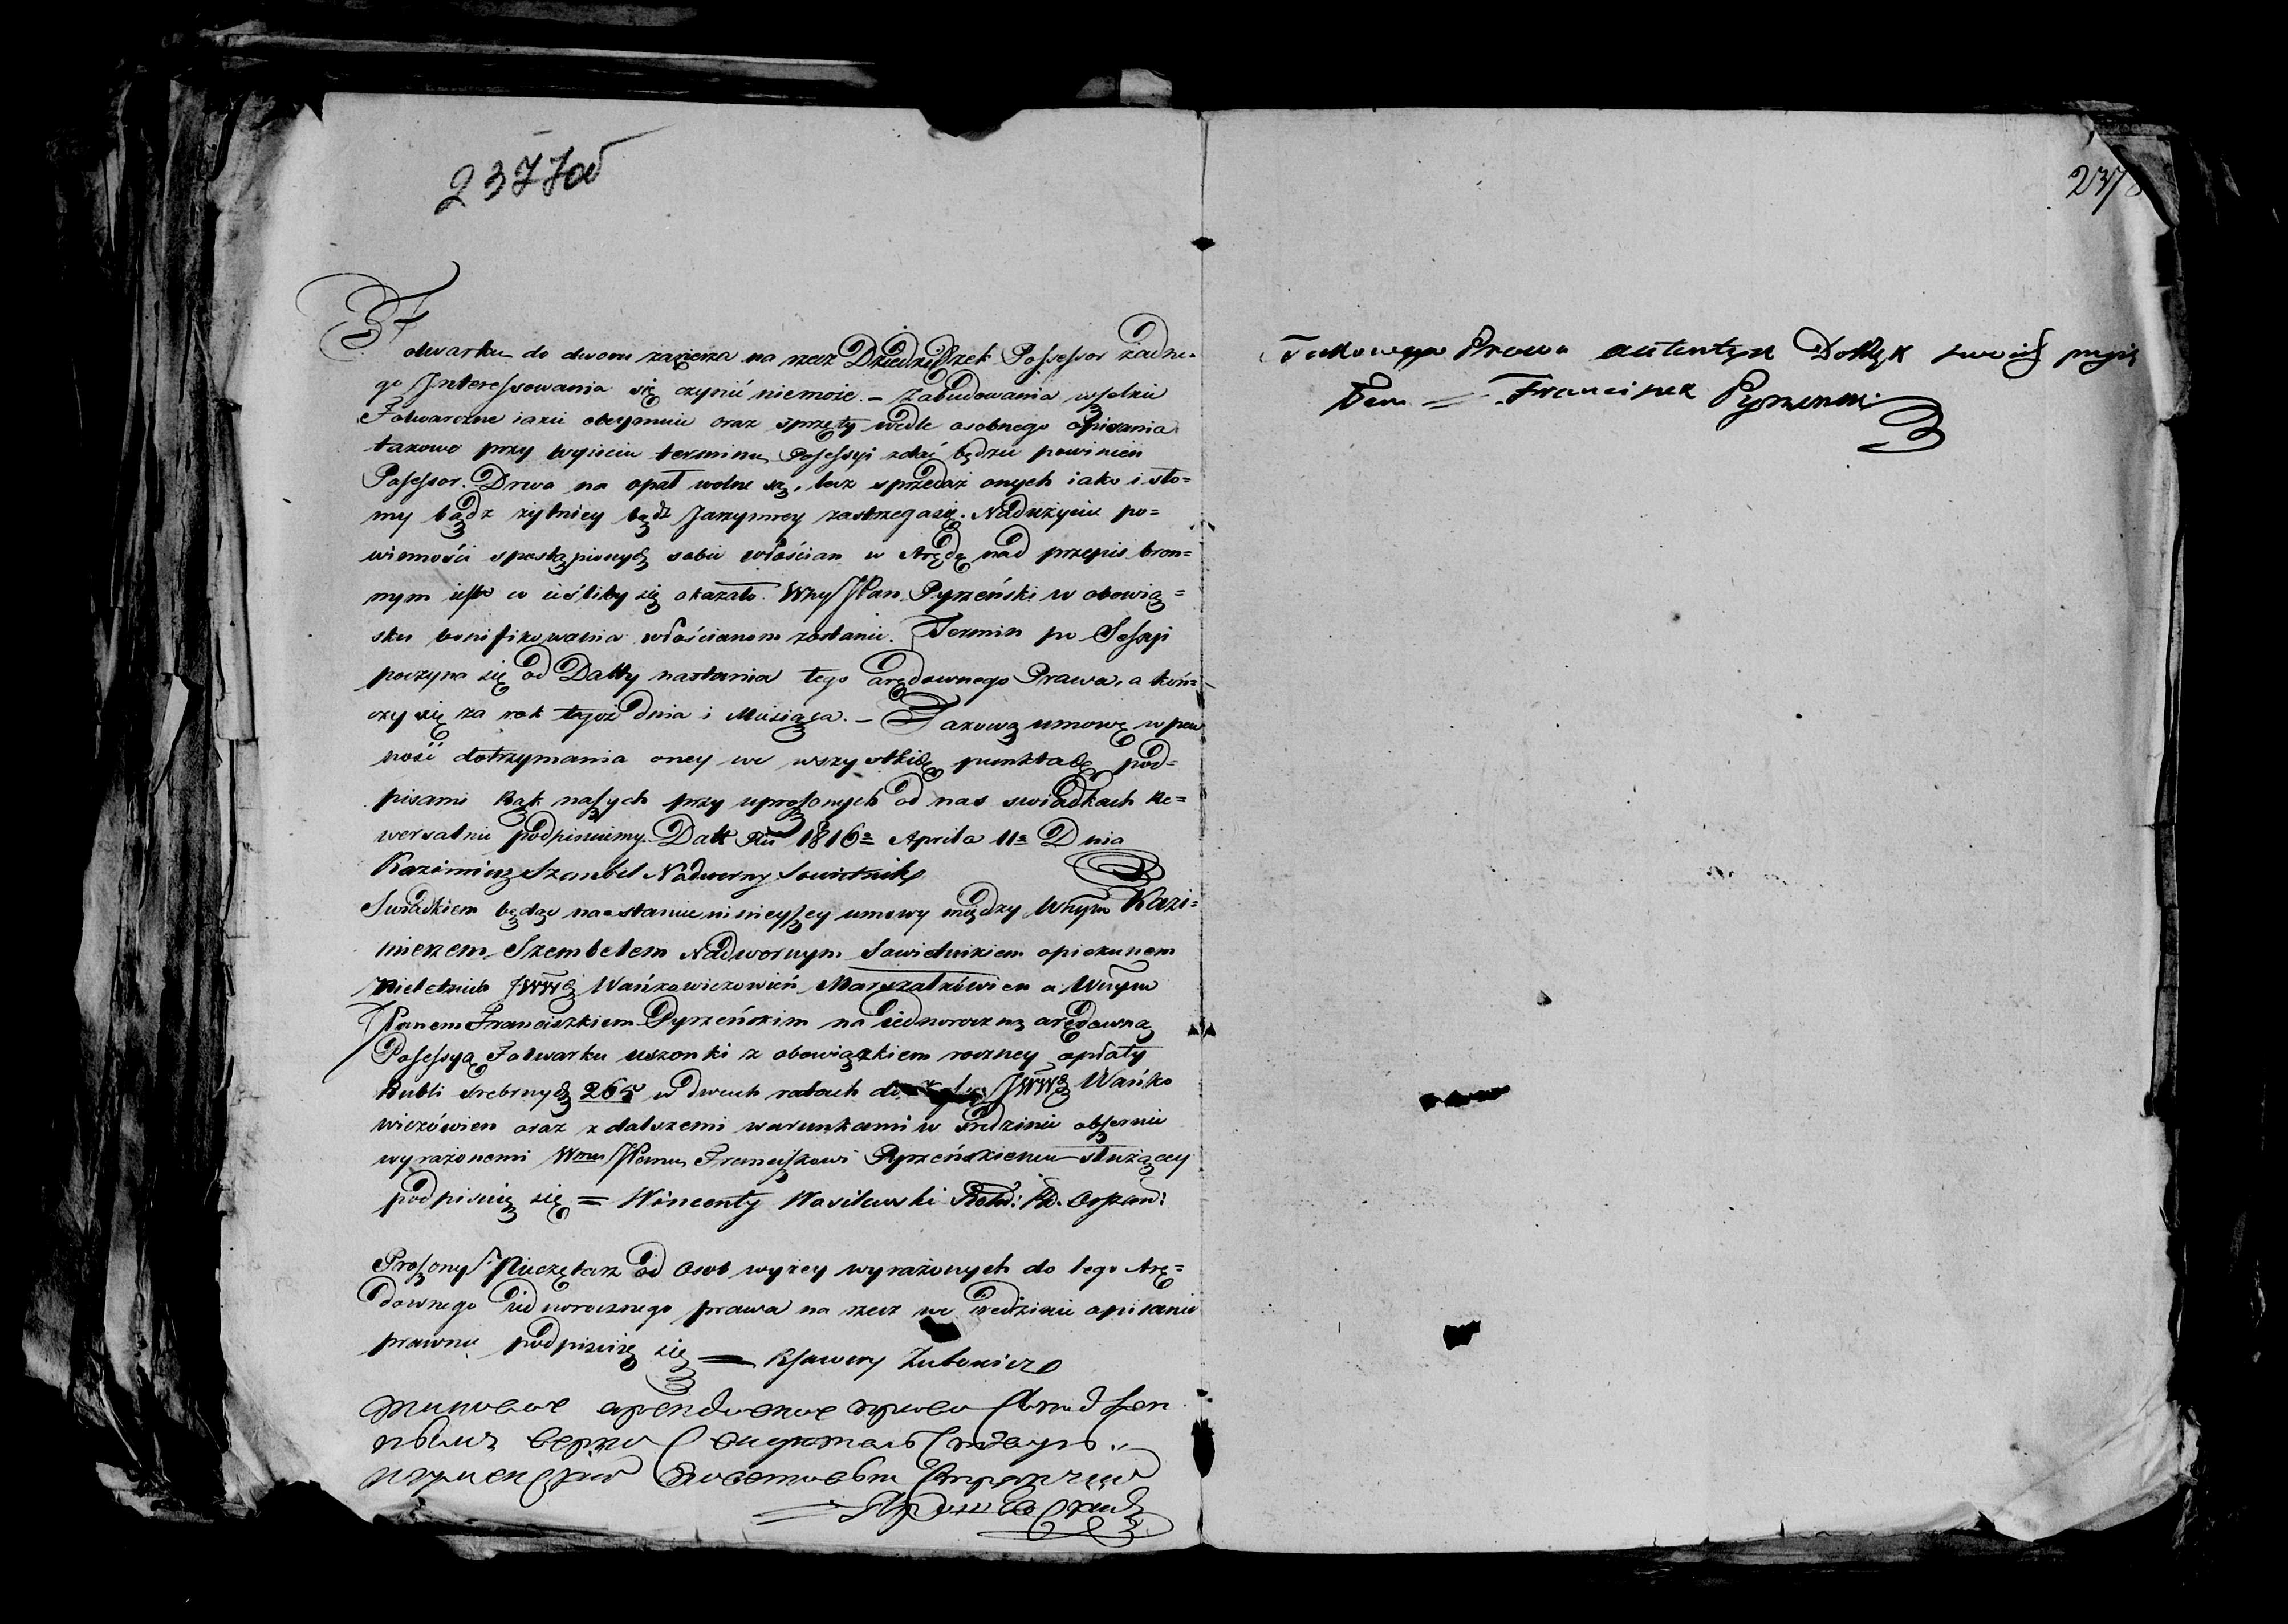 2377 об
2378
Folwarku do dworu zawiera na rzecz Dziedziczek Possessor żadne-
go Interessowania się czynić niemoże. – Zabudowania wszelkie
Folwarczne iakie obeymuie oraz sprzęty wedle osobnego opisania
takowo przy wyiściu terminu Possessyi zdać będzie powinien
Possessor. Drwa na opał wolne są, lecz sprzedaż onych iako i sło=
my bądz żytniey bądz Jarzynney zastrzega się. Nadużycie po=
winności spostąpionych sobie włościan w Arędę nad przepis bron=
nym iest co ieśliby się okazało. Wny JPan Pyrzeński w obowią=
sku bonifikowania włościanom zostanie. Termin po Sessyi
poczyna się od Datty nastania tego arędownego Prawa, a koń=
czy się za rok tegoż dnia i Miesiąca. – Takową umowę w pew
ność dotrzymania oney we wszystkich punktach pod=
pisami Rąk naszych przy uproszonych od nas swiadkach Re=
wersalnie podpisuiemy. Datt Ru 1816º Aprila 11º Dnia
Kazimierz Szembel Nadworny Sowietnik
Swiadkiem będąc nastanie ninieyszey umowy między Wnym Kazi=
mierzem Szembelem Nadwornym Sowietnikiem opiekunem
nieletnich JWWch Wańkowiczowień Marszałkówien a Wnym
JPanem Franciszkiem Pyrzeńskim na iednoroczną arędowną
Possessyą Folwarku uszonki z obowiązkiem roczney opłaty
Rubli srebrnych 265 w dwuch ratach do JWWch Wańko
wiczówien oraz z dalszemi warunkami w sredzinie obszernie
wyrażonemi Wmu JPanu Franciszkowi Pyrzeńskiemu służącey
podpisuię się = Wincenty Wasilewski
Proszony Pieczętarz od Osob wyżey wyrażonych do tego Arę=
downego iednorocznego prawa na rzecz we srzedzinie opisanie
prawnie podpisuię się = Ksawery
Takowego Prawa autentyk Do Xięk swoich przyią
łem = Franciszek Pyrzenski